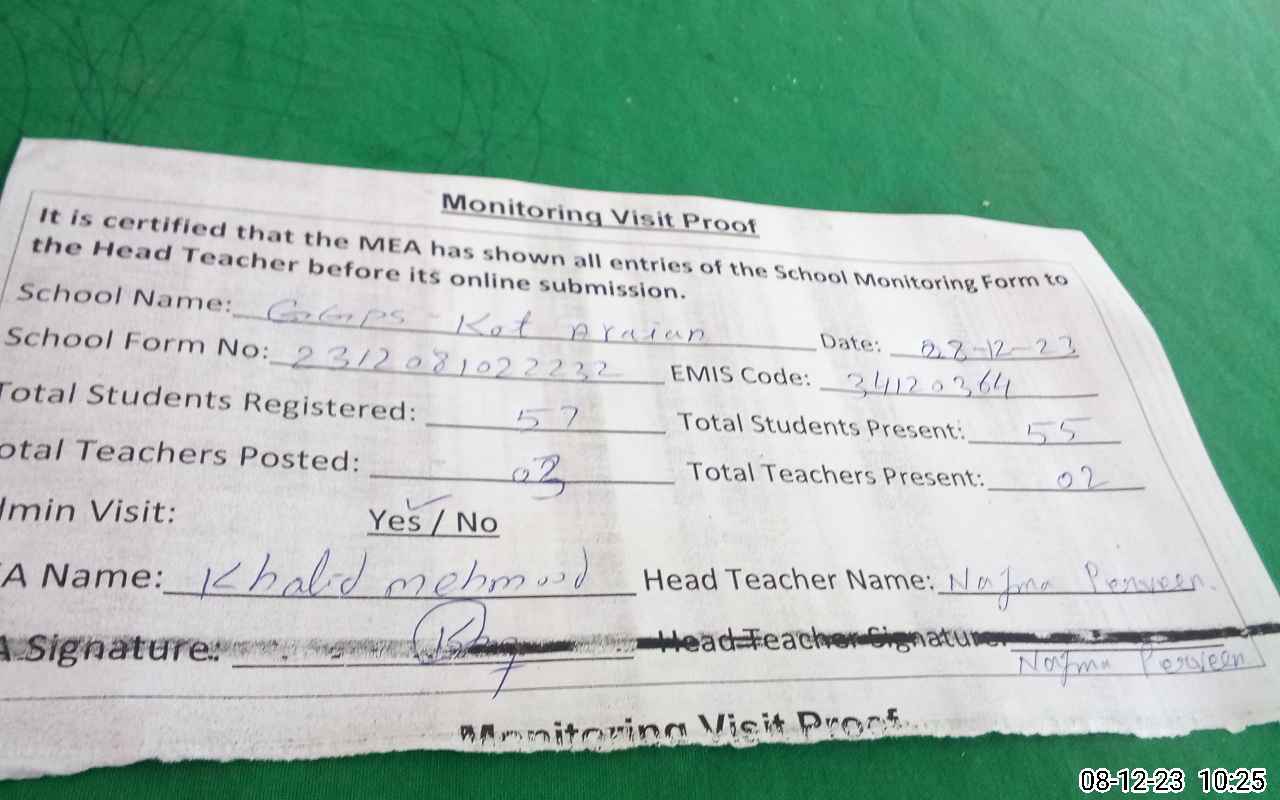 Monitoring Visit Proof
It is certified that the MEA has shown all entries of the School Monitoring Form to
the Head Teacher before its online submission.
School Name: GGPS Kot Araian Date: 08-12-23
School Form No: 2312081022232 EMIS Code: 34120364
Total Students Registered: 57 Total Students Present: 55
otal Teachers Posted: 03 Total Teachers Present: 02
dmin Visit: Yes / No
A Name: Khalid mehmood Head Teacher Name: Najma Perveen.
A Signature: Head Teacher Signature: Najma Perveen
Monitoring Visit Proof
08-12-23 10:25